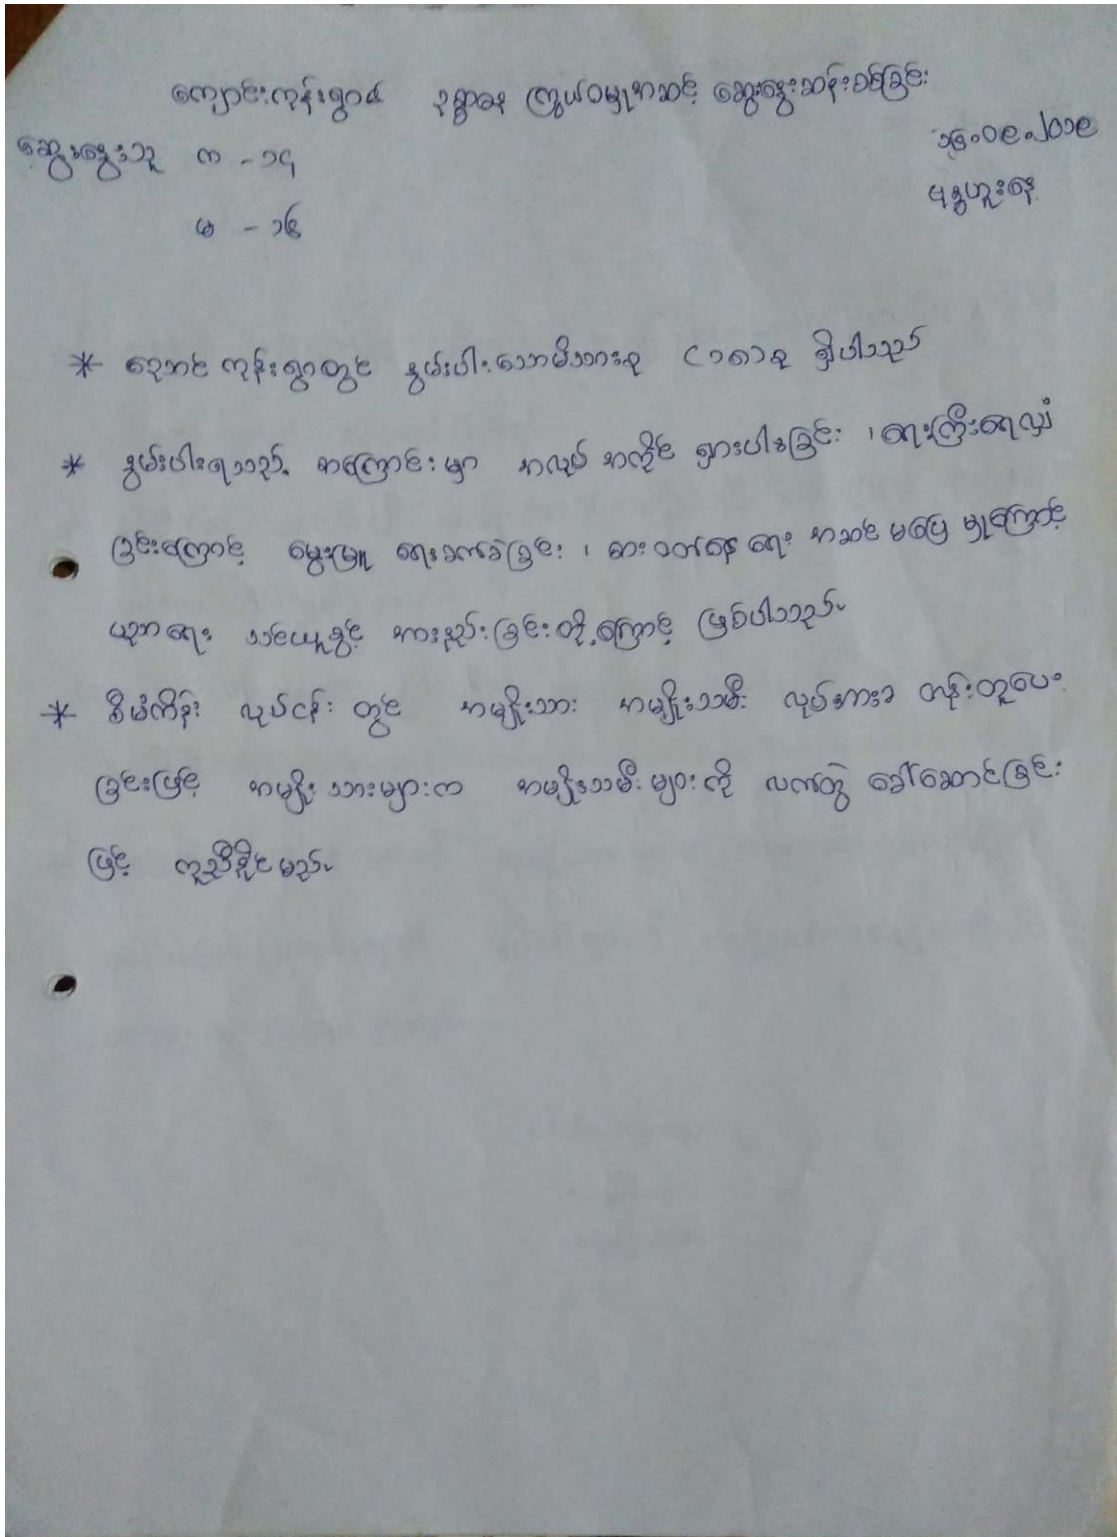 ကျောင်းကုန်းရွာ၏ ဥစ္စာဓန ကြွယ်ဝမှုအဆင့် ဆွေးနွေးဆန်းစစ်ခြင်း
ဆွေးနွေးသူ ကျ - ၁၄
၁၆.၀၉.၂၀၁၉
မ - ၁၆
ဗုဒ္ဓဟူးနေ့
* ကုန်းရွာတွင် နွမ်းပါးသောမိသားစု ရှိပါသည်
* နွမ်းပါးရသည့် အကြောင်းမှာ အလုပ် အကိုင် ရှားပါးခြင်း ၊ ရေကြီးရေလျှံ
ခြင်းကြောင့် မွေးမြူ ရေးခက်ခဲခြင်း ၊ စား ဝတ်နေ ရေး အဆင် မပြေ မှုကြောင့်
ပညာရေး သင်ယူခွင့် အားနည်းခြင်းတို့ကြောင့် ဖြစ်ပါသည်။
* စီမံကိန်း လုပ်ငန်း တွင် အမျိုးသား အမျိုးသမီး လုပ်အားခ တန်းတူပေး
ခြင်းဖြင့် အမျိုး သားများက အမျိုးသမီး များ ကို လက်တွဲ ခေါ်ဆောင်ခြင်း
ဖြင့် ကူညီနိုင်မည်။